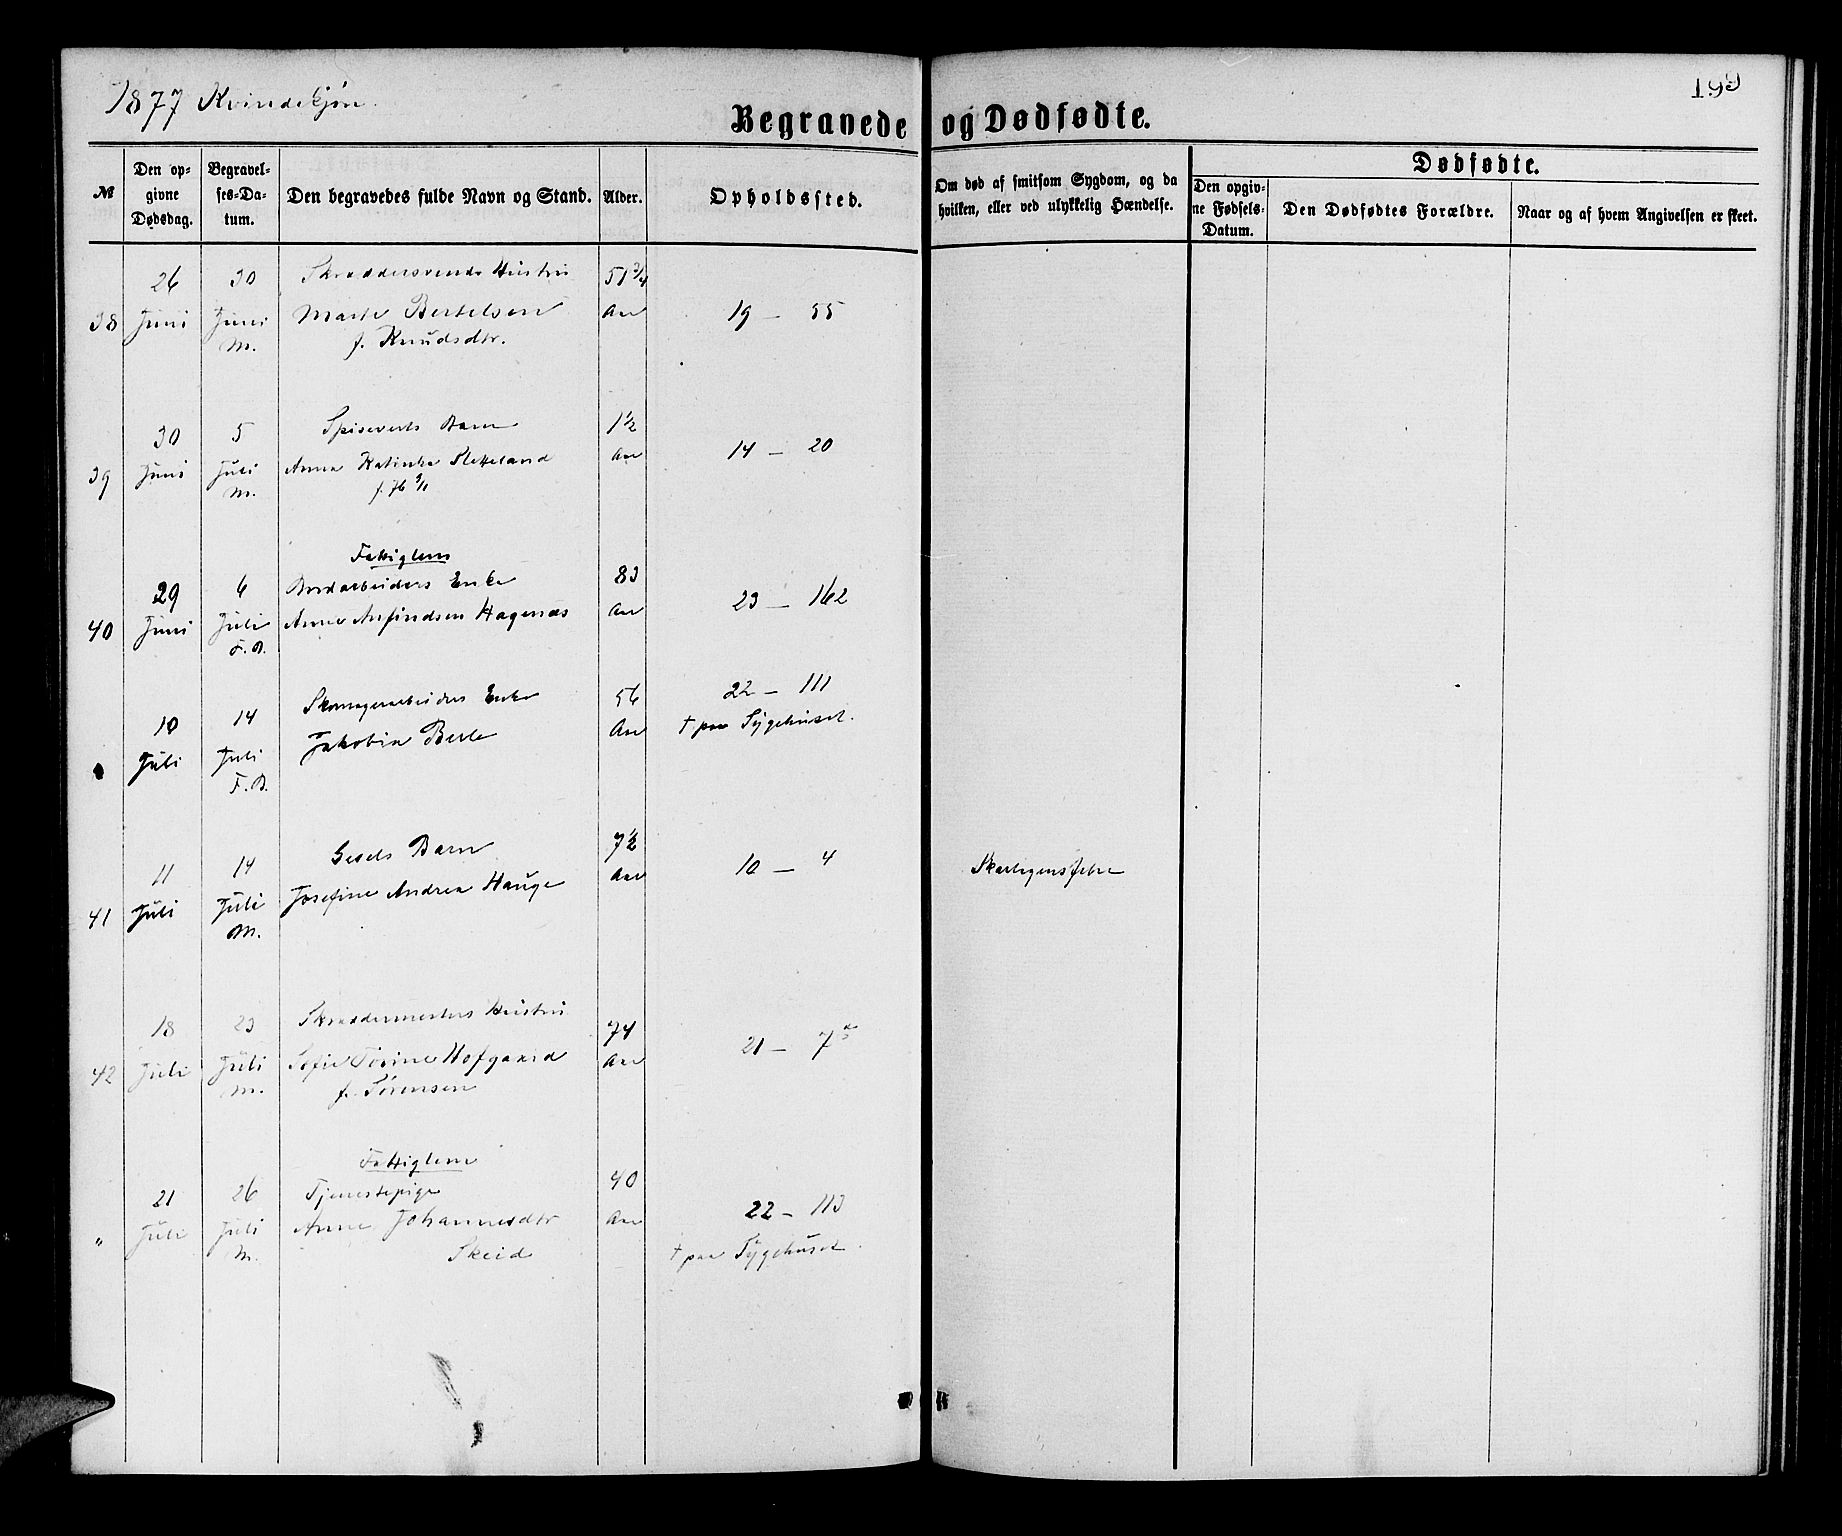 1877 Kvindekjøn.
199
Begravede og Dødfødte.
№
Den op-
givne
Dødsdag.
Begravel-
ses-Da-
tum.
Den begravedes fulde Navn og Stand.
Alder.
Opholdssted.
Om død af smitsom Sygdom, og da
hvilken, eller ved ulykkelig Hændelse.
Dødfødte.
Den opgiv-
ne Fødsels-
Datum.
Den Dødfødtes Forældre.
Naar og af hvem Angivelsen er skeet.
38
26
Juni
30
Juni
M.
Skræddersvends Hustru
Marte Bertelsen
f. Knudsdtr.
51 3/4
Aar
19 — 55
39
30
Juni
5
Juli
M.
Spiseverts Barn
Anna Katinka Sletteland
1 1/2
Aar
14 — 20
40
29
Juni
6
Juli
F.B.
Fattiglem
Enke
Anne Arfindsen Hagenæs
83
Aar
23 — 162
10
Juli
14
Juli
F.B.
Skomagerarbeiders Enke
Jakobia Berle
56
Aar
22 — 111
† paa Sygehuset.
41
11
Juli
14
Juli
M.
Gesels Barn
Josefine Andrea Hauge
7 1/2
Aar
10 — 4
Skarlagensfeber
42
18
Juli
23
Juli
M.
Skræddermesters Hustru
Sofie Tørine Hofgaard
f. Sørensen
74
Aar
21 — 7
"
21
Juli
26
Juli
M.
Fattiglem
Tjenestepige
Anne Johannesdtr
Skeid
40
Aar
22 — 113
† paa Sygehuset.